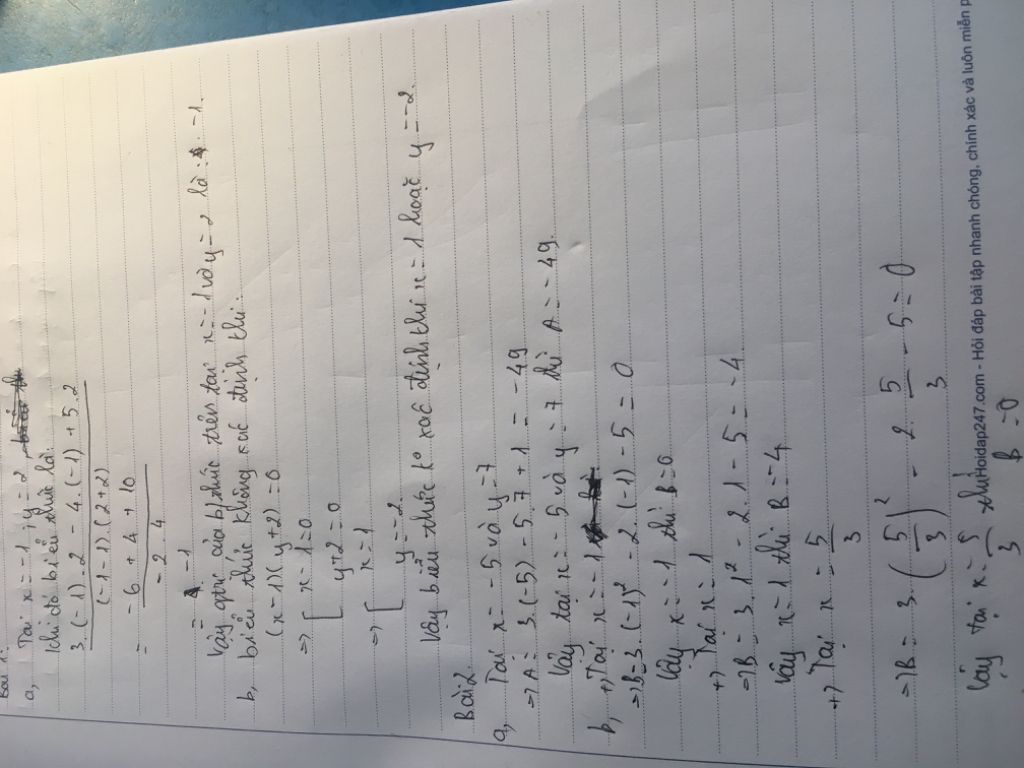 Bài 1:
a, Tại x = -1, y = 2
Khi đó biểu thức là:
3.(-1).2 - 4.(-1) + 5.2
(-1-1).(2+2)
= -6 + 4 + 10
-2 . 4
= -1
Vậy gtrị của bthức trên tại x = -1 và y = 2 là: -1.
b, biểu thức không xác định thì:
(x-1)(y+2) = 0
=> [ x-1=0
y+2=0
=> [ x=1
y=-2
Vậy biểu thức ko xác định thì x=1 hoặc y=-2.
Bài 2.
a, Tại x = -5 và y = 7
=> A = 3.(-5) - 5.7 + 1 = -49
Vậy tại x = -5 và y = 7 thì A = -49.
b, +, Tại x = -1
=> B = 3.(-1)² - 2.(-1) - 5 = 0
Vậy x = -1 thì B = 0
+, Tại x = 1
=> B = 3.1² - 2.1 - 5 = -4
Vậy x = 1 thì B = -4
+, Tại x = 5/3
=> B = 3.(5/3)² - 2.5/3 - 5 = 0
Vậy tại x = 5/3 thì B = 0
Hoidap247.com - Hỏi đáp bài tập nhanh chóng, chính xác và luôn miễn p